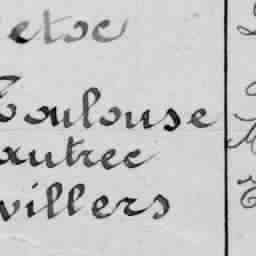 etoc
Toulouse
autrec
villers